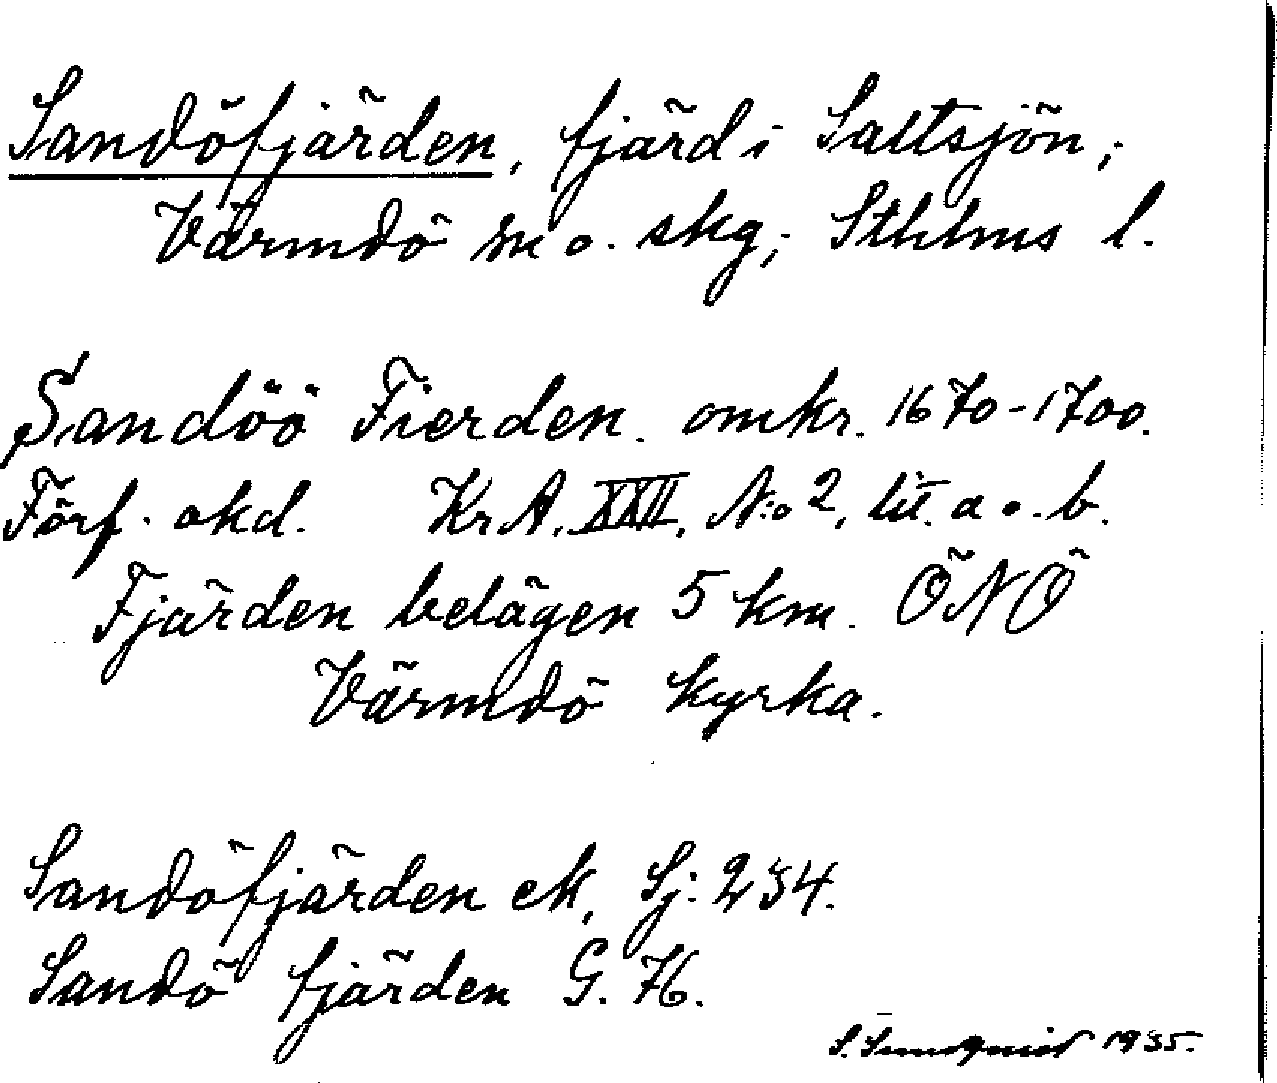 Sandöfjärden, fjärd i Saltsjön,
Värmdö m o. skg, Sthlms l.
Sandöö Fierden. omkr. 1670-1700.
Förf. okd. KrA. XXII, N:o 2, lit. a o. b.
Fjärden belägen 5 km. ÖNÖ
Värmdö kyrka.
Sandöfjärden ek, Sj: 234.
Sandö fjärden G. K.
1935.